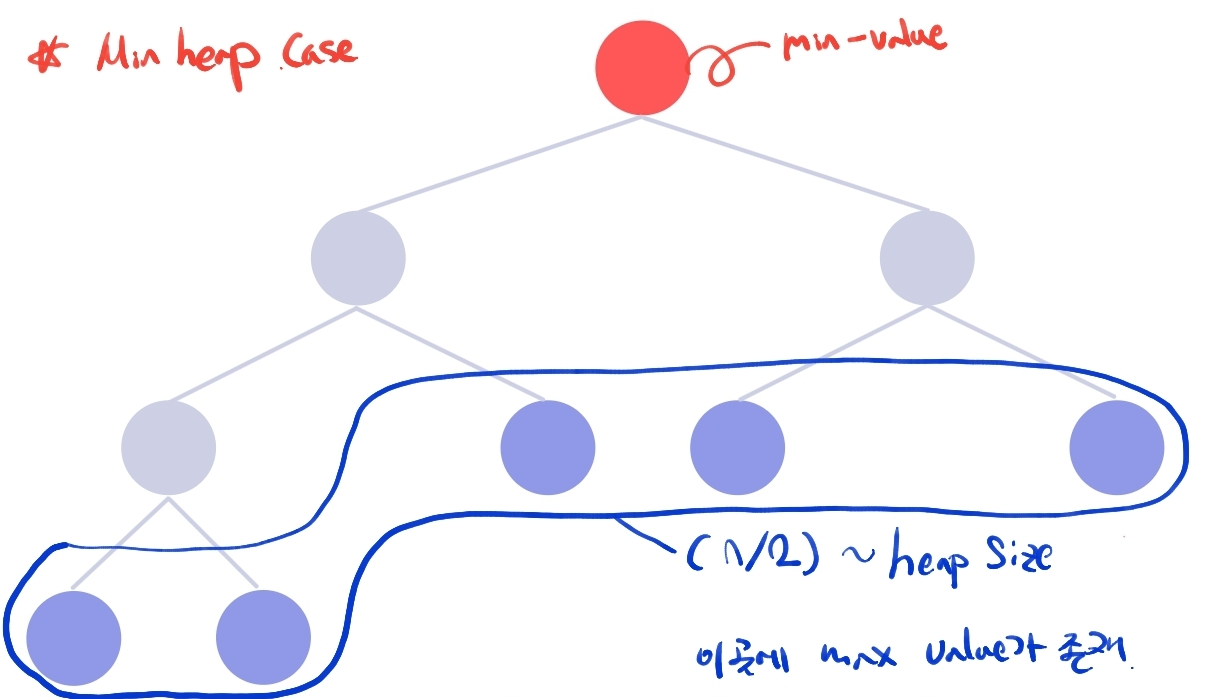 * Min heap Case
min-value
(n/2) ~ heap Size
이곳에 max value가 존재.